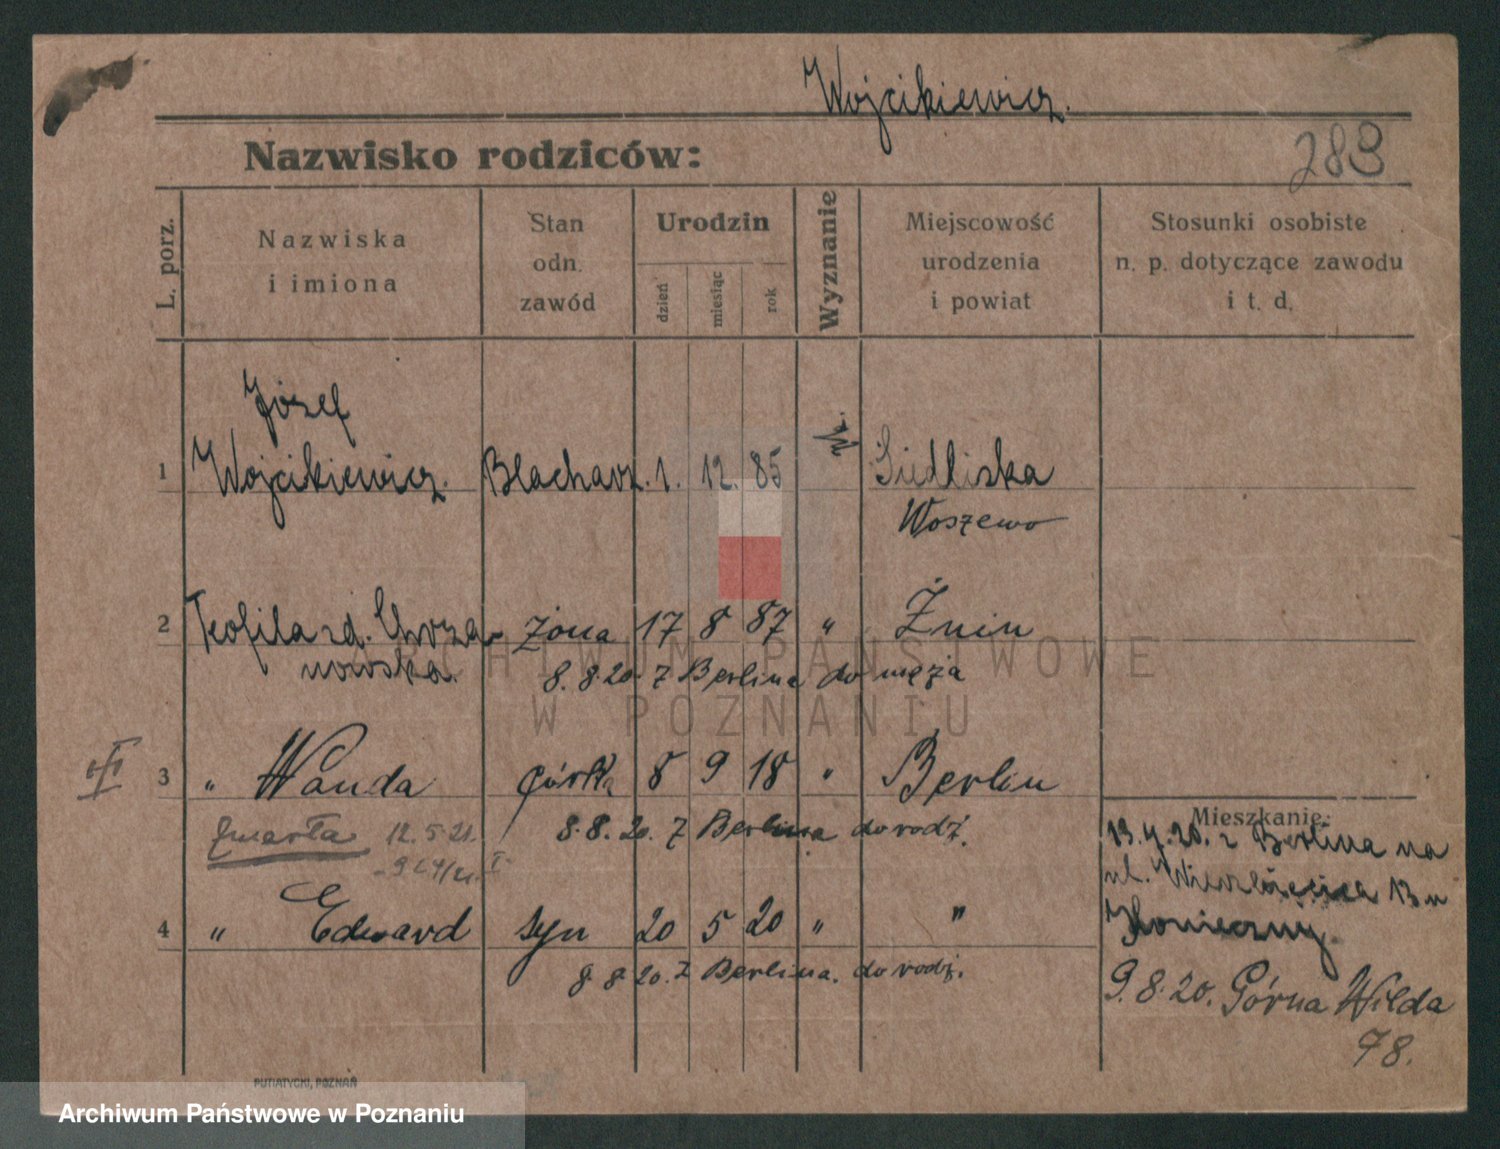 Wojcikiewicz.
Nazwisko rodziców:
289
L. porz.
Nazwiska
i imiona
Stan
odn.
zawód
Urodzin
dzień
miesiąc
rok
Wyznanie
Miejscowość
urodzenia
i powiat
Stosunki osobiste
n. p. dotyczące zawodu
i t. d.
Józef
1 Wojcikiewicz. Blacharz. 1. 12. 85 Siedliska
Woszewo
2 Teofila zd. Chrza- żona 17 8 87 " Żnin
nowska. 8. 8. 20. z Berlina do męża
3 " Wanda córka 8 9 18 " Berlin
zmarła 12. 5. 21. 8. 8. 20. z Berlina do rodz.
4 " Edward syn 20 5 20 " "
8. 8. 20. z Berlina. do rodz.
Mieszkanie:
13. 4. 20. z Berlina na
ul. 13 u
9. 8. 20. Górna Wilda
78.
PUTIATYCKI, POZNAŃ
ARCHIWUM PAŃSTWOWE
W POZNANIU
Archiwum Państwowe w Poznaniu